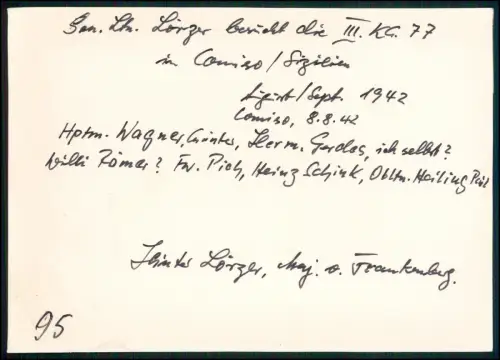 Gen. Ltn. Lörzer besucht die III. KG. 77
in Comiso / Sizilien
August / Sept. 1942
Comiso, 8.8.42
Hptm. Wagner, Günter, Herm. Gerdes, ich selbst?
Willi Römer? Fw. Pich, Heinz Schink, Obltn. Heiling
Hinter Lörzer, Maj. v. Frankenberg.
95